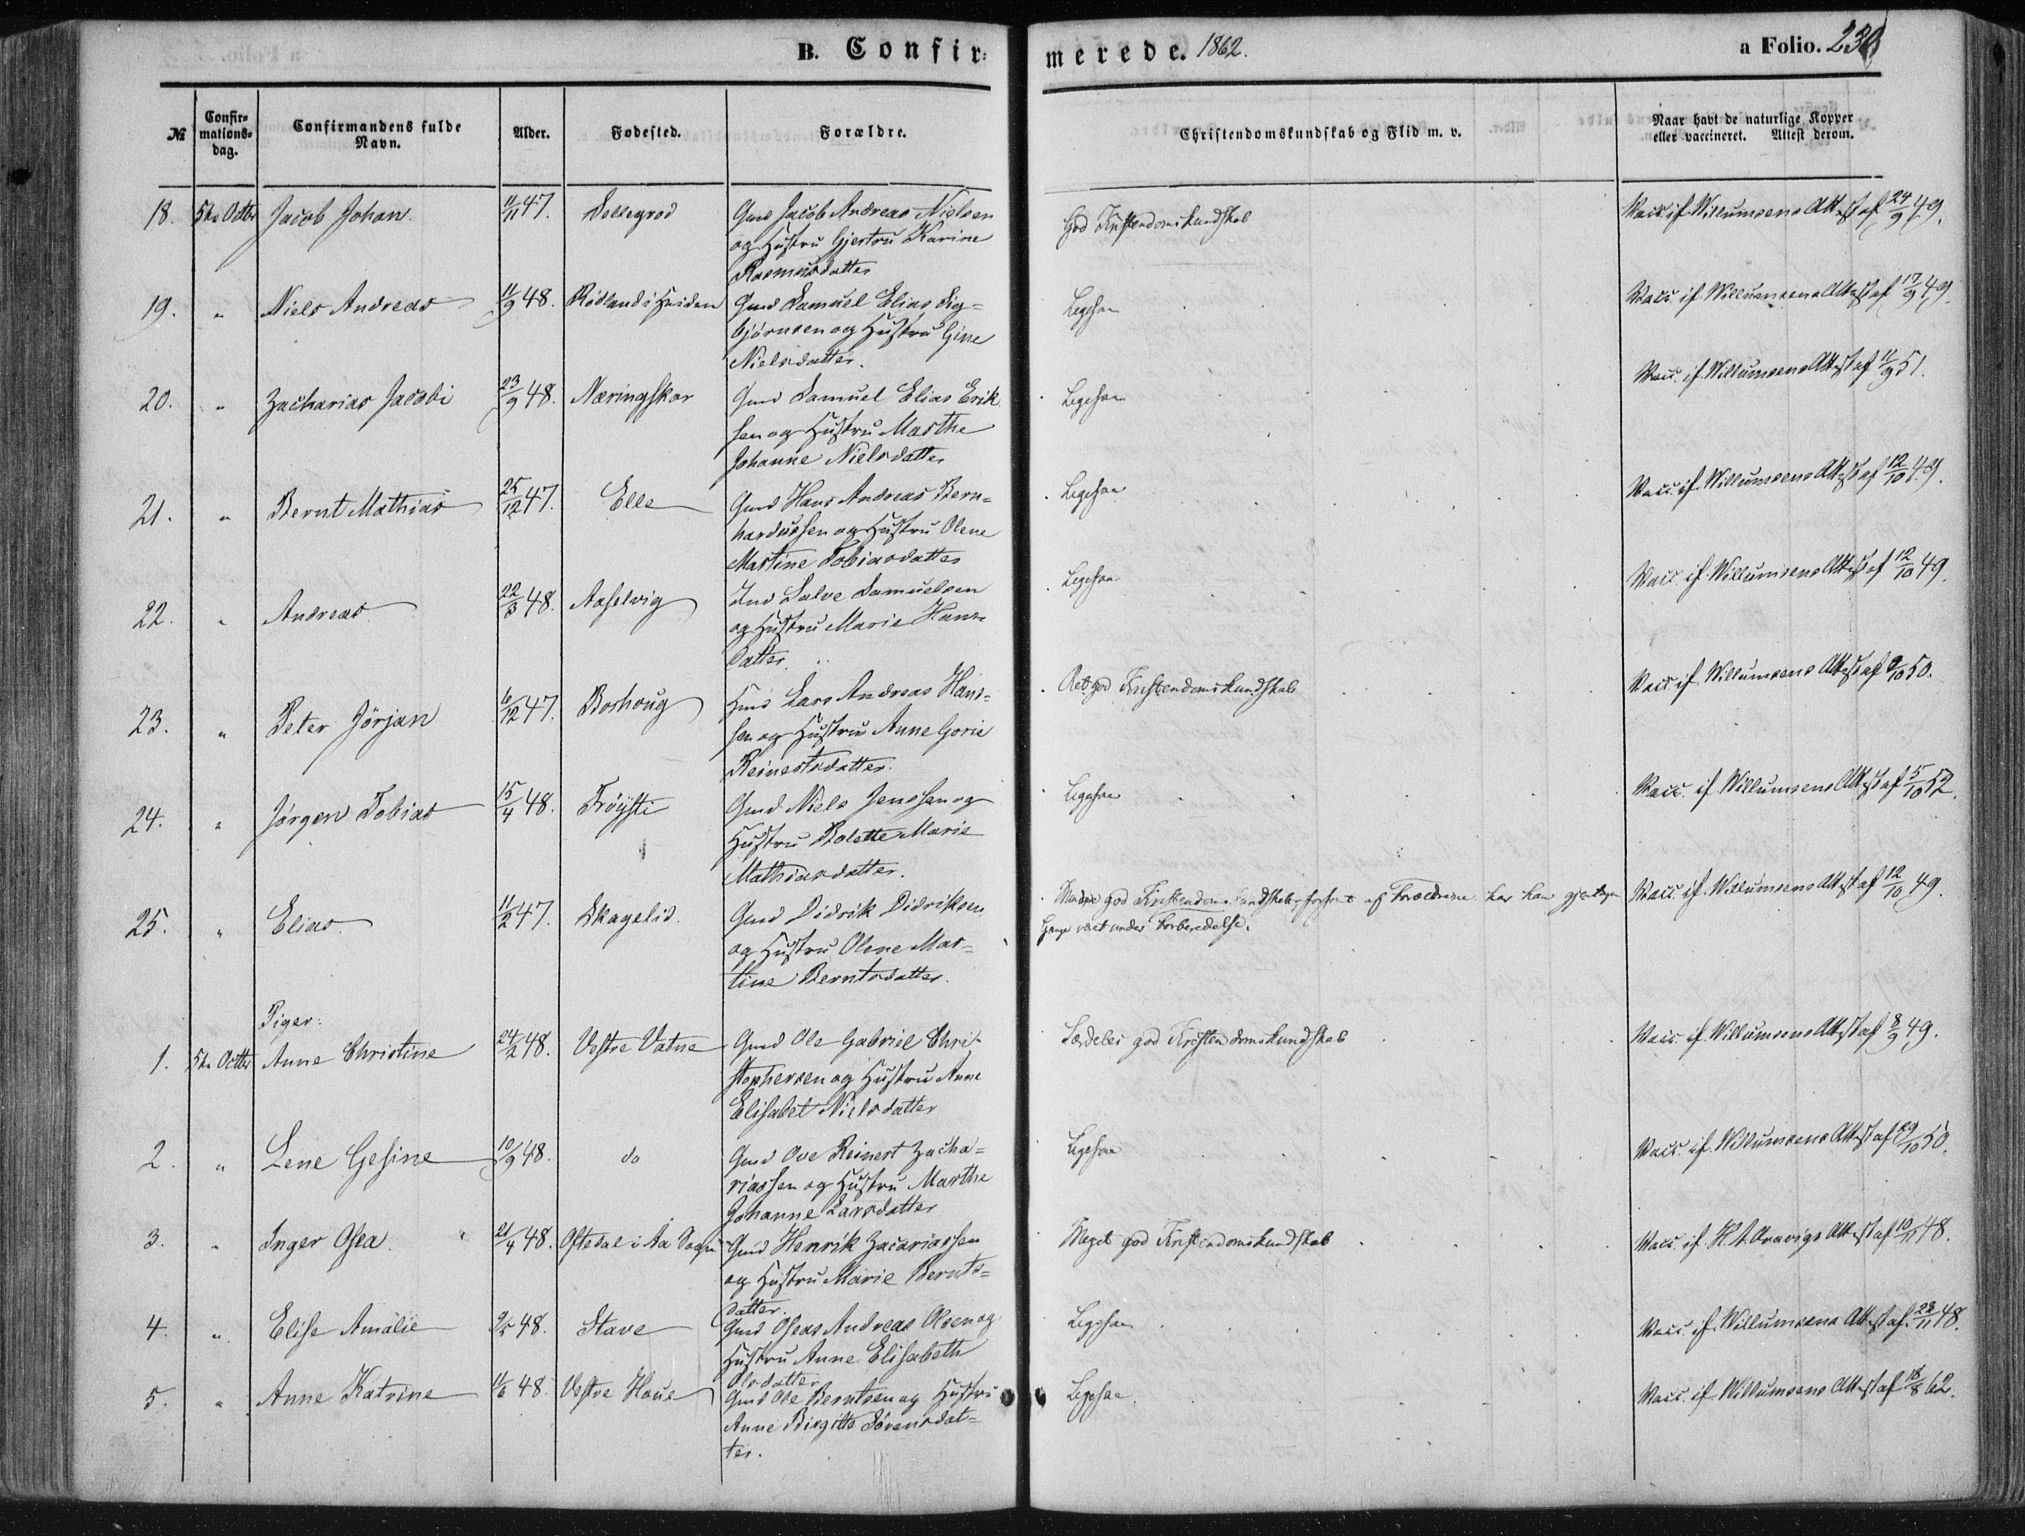 B. Confirmerede. 1862.
a Folio. 230
№
Confirmations-dag.
Confirmandens fulde Navn.
Alder.
Fødested.
Forældre.
Christendomskundskab og Flid m. v.
Naar havt de naturlige Kopper eller vaccineret. Attest derom.
18. 5te Octbr Jacob Johan. 11/11 47.
Gmd Jacob Andreas Nielsen
og Hustru Gjertru Karine
Rasmusdatter
God Kristendomskundskab
Vacc. if. Willumsens Attest af 24/9 49.
19. " Niels Andreas 11/9 48. Rødland i Hviden
Gmd Samuel Elias Sig=
bjørnsen og Hustru Gine
Nielsdatter.
Ligesaa
Vacc. if. Willumsens Attest af 17/9 49.
20. " Zacharias Jacobi 23/9 48. Næringskar
Gmd Samuel Elias Erik
sen og Hustru Marthe
Johanne Nielsdatter
Ligesaa
Vacc. if. Willumsens Attest af 11/9 51.
21. " Bernt Mathias 25/12 47. Elle
Gmd Hans Andreas Bern=
hardussen og Hustru Olene
Martine Tobiasdatter
Ligesaa
Vacc. if. Willumsens Attest af 12/10 49.
22. " Andreas 22/3 48. Aaselvig
Ind Salve Samuelsen
og Hustru Marie Hans=
datter.
Ligesaa
Vacc. if. Willumsens Attest af 12/10 49.
23. " Peter Jørjan 6/12 47. Boshoug
Hmd Lars Andreas Han=
sen og Hustru Anne Gorie
Reinertsdatter.
Ret god Kristendomskundskab
Vacc. if. Willumsens Attest af 9/10 50.
24. " Jørgen Tobias 15/4 48. Trøysti
Gmd Niels Jenssen og
Hustru Bolette Marie
Mathiasdatter.
Ligesaa
Vacc. if. Willumsens Attest af 5/10 52.
25. " Elias 11/2 47. Skagelid.
Gmd Didrik Didriksen
og Hustru Olene Mar=
tine Berntsdatter.
Mindre god Kristendomskundskab, af Forældrene har han gjentagne
Gange været under Forberedelse.
Vacc. if. Willumsens Attest af 12/10 49.
Piger:
1. 5te Octbr Anne Christine 24/2 48. Vestre Vatne
Gmd Ole Gabriel Chri=
stophersen og Hustru Anne
Elisabet Nielsdatter
Særdeles god Kristendomskundskab
Vacc. if. Willumsens Attest af 8/9 49.
2. " Lene Gesine 10/9 48. do
Gmd Ove Reinert Zacha=
riassen og Hustru Marthe
Johanne Larsdatter
Ligesaa
Vacc. if. Willumsens Attest af 29/10 50.
3. " Inger Osea. 21/4 48. Oftedal i Aa Sogn
Gmd Henrik Zacariassen
og Hustru Marie Bernts=
datter.
Meget god Kristendomskundskab
Vacc. if. Aravigs Attest af 10/11 48.
4. " Elise Amalie 2/5 48. Stave
Gmd Oseas Andreas Olsen og
Hustru Anne Elisabeth
Olsdatter
Ligesaa
Vacc. if. Willumsens Attest af 22/11 48.
5. " Anne Katrine 11/6 48. Vestre Houe
Gmd Ole Berntsen og Hustru
Anne Birgitte Sørensdat=
ter.
Ligesaa
Vacc. if. Willumsens Attest af 18/8 62.